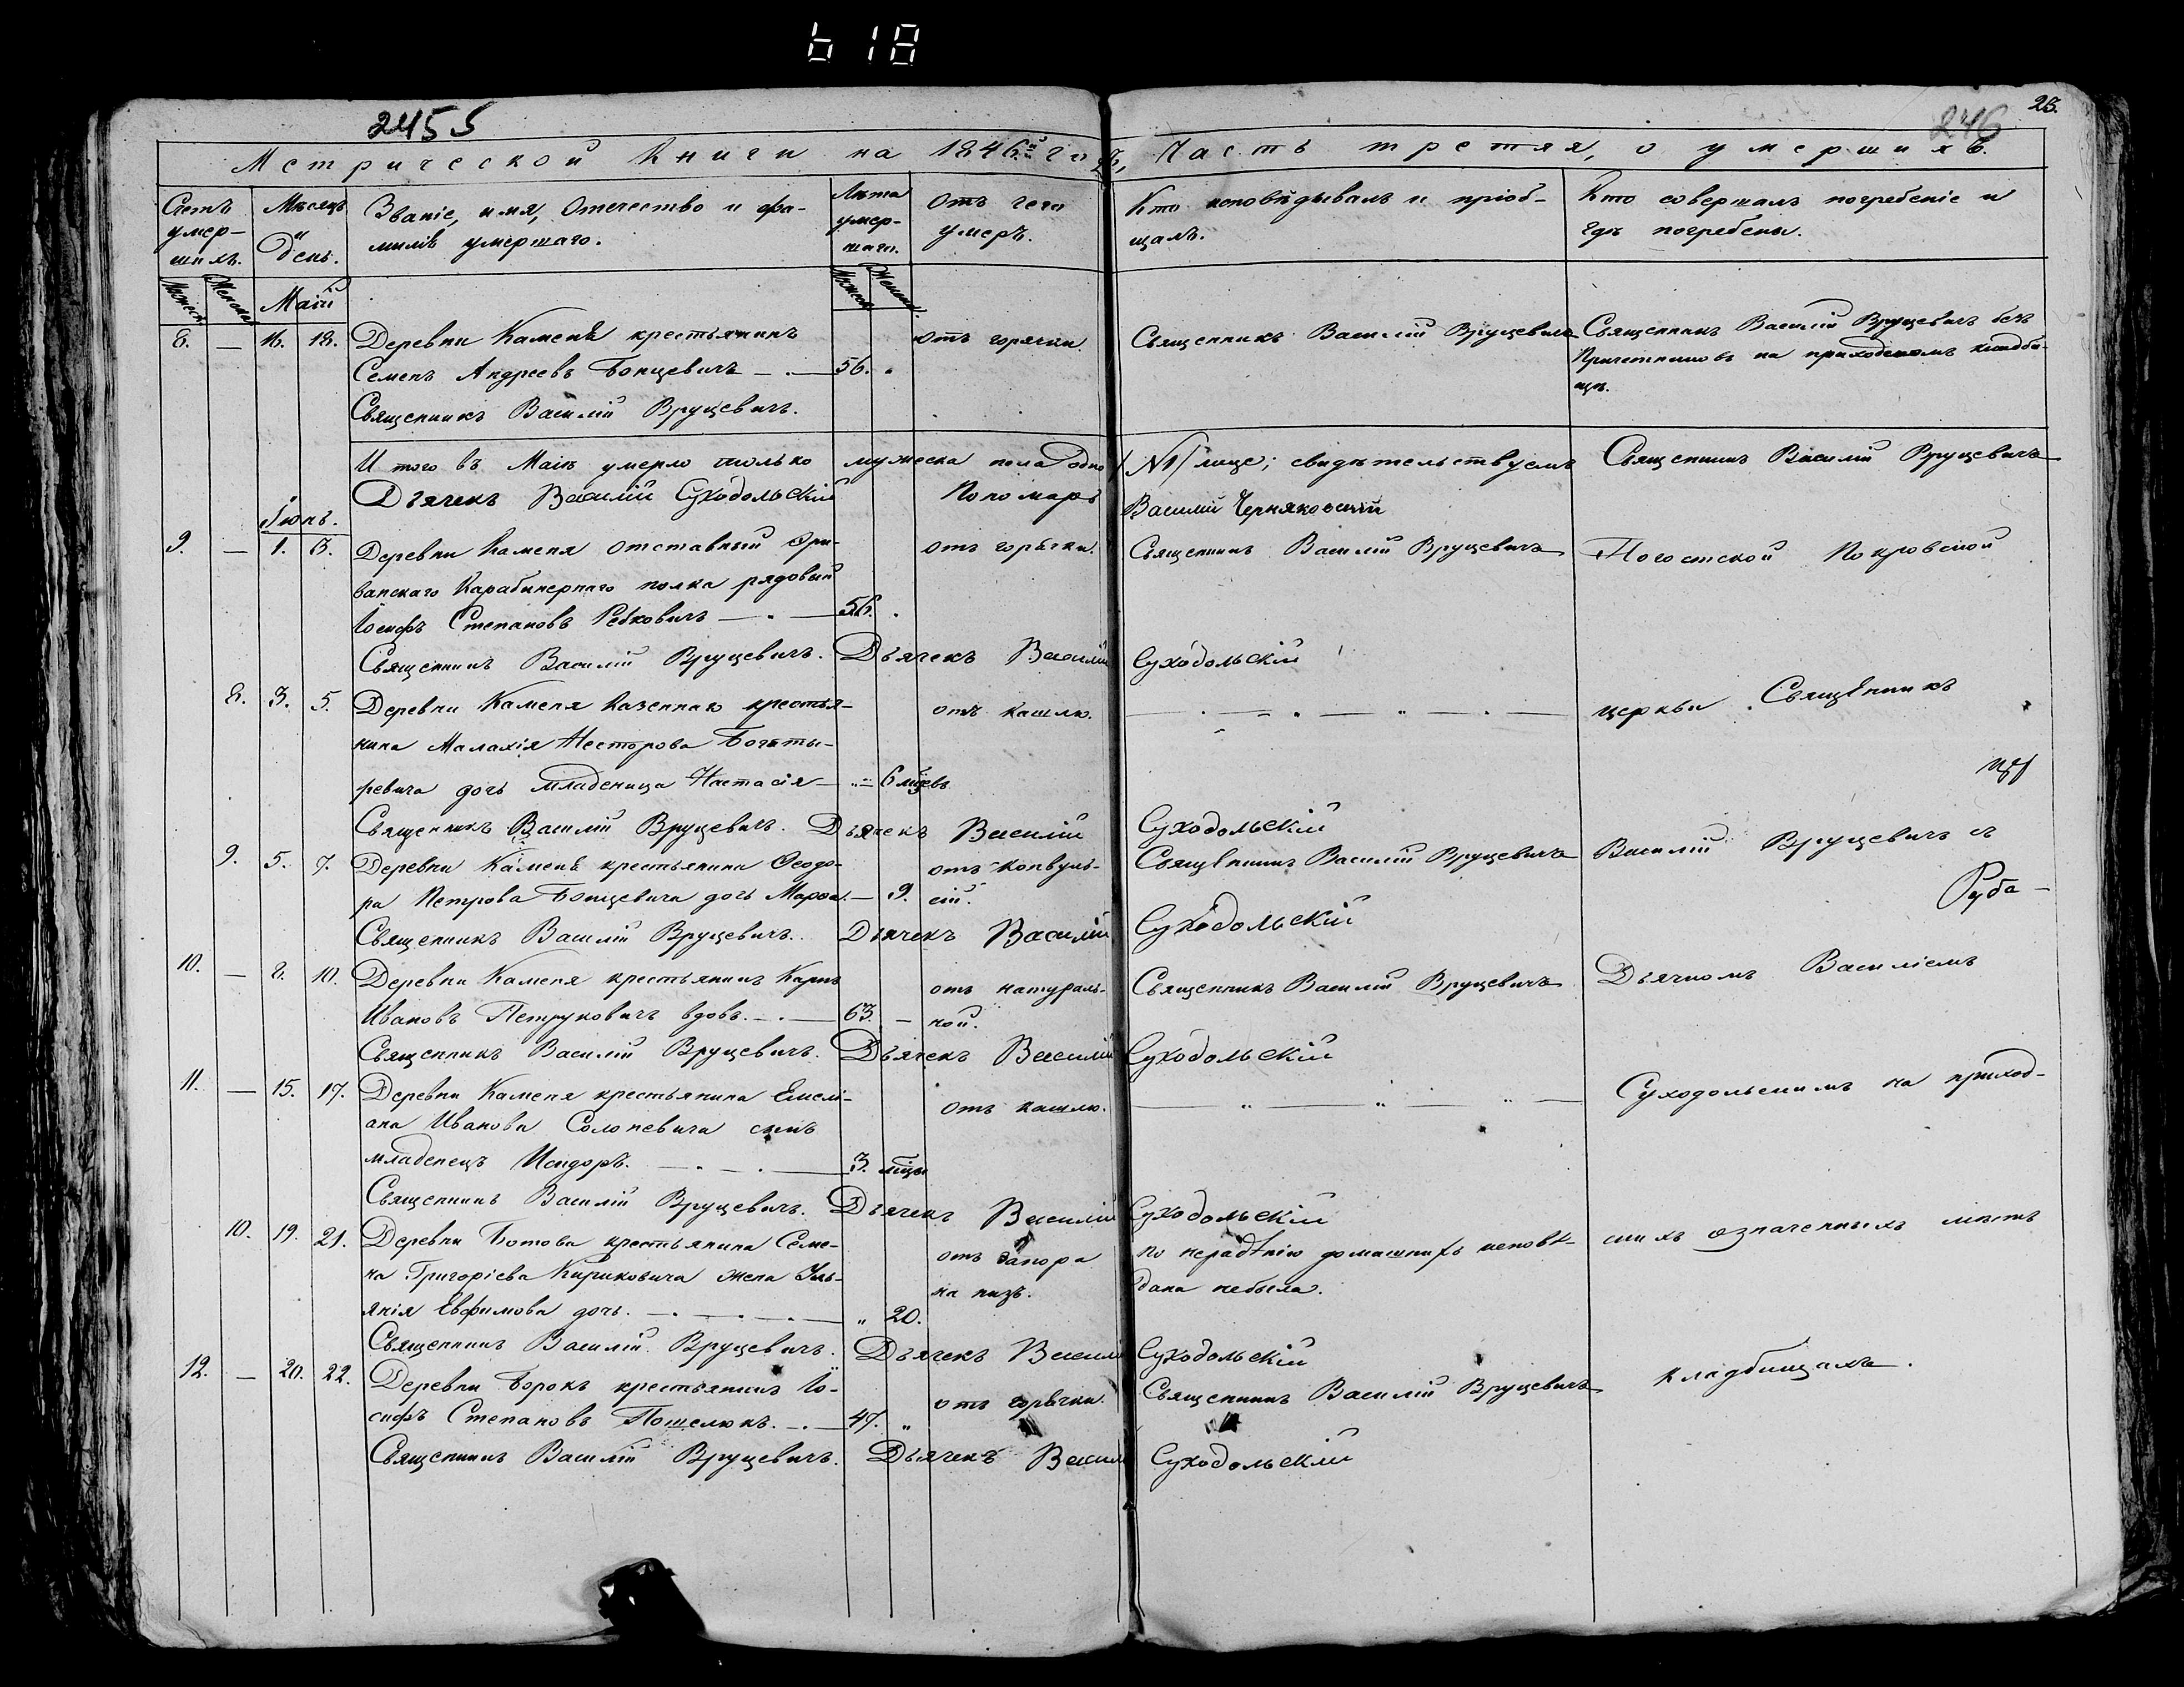 618
245 S
246
23.
Метрической Книги на 1846й годъ, Часть третяя, о умершихъ.
Счетъ умер-
шихъ.
Мѣсяцъ и
День.
Званіе, имя, Отечество и фа-
милія умершаго.
Лѣта
умер-
шаго.
Отъ чего
умеръ.
Кто исповѣдывалъ и пріоб-
щалъ.
Кто совершалъ погребеніе и
гдѣ погребены.
Мужеска Женска
Маій
Мужеска Женска
8. — 16. 18. Деревни Каменя крестьянинъ
Семенъ Андреевъ Бонцевичъ — . — 56. „
отъ горячки.
Священникъ Василій Вруцевичъ
Священникъ Василій Вруцевичъ безъ
Причетниковъ на приходскомъ кладби-
щѣ.
Священникъ Василій Вруцевичъ.
И того въ Маіѣ умерло только мужеска пола одно /№1/ лице; свидѣтельствуемъ Священникъ Василій Вруцевичъ
Дьячекъ Василій Суходольскій Пономарь Василій Черняковскій
Іюнь.
9. — 1. 3. Деревни Каменя отставный Эри-
ванскаго Карабинернаго полка рядовый
Іосифъ Степановъ Ребковичъ — . — 56. „
отъ горячки.
Священникъ Василій Вруцевичъ
Погостской Покровской
Священникъ Василій Вруцевичъ. Дьячекъ Василій Суходольскій
8. 3. 5. Деревни Каменя Казеннаго крестья-
нина Малахія Несторова Богаты-
ревича дочь младеница Настасія — „ — 6 мцевъ
отъ кашлю.
— „ — „ — „ —
церкви Священникъ
Священникъ Василій Вруцевичъ. Дьячекъ Василій Суходольскій
9. 5. 7. Деревни Каменя крестьянина Ѳеодо-
ра Петрова Бонцевича дочь Марѳа. — 9.
отъ конвуль-
сій.
Священникъ Василій Вруцевичъ
Василій Вруцевичъ съ
Священникъ Василій Вруцевичъ. Дьячекъ Василій Суходольскій
10. — 8. 10. Деревни Каменя крестьянинъ Карпъ
Ивановъ Петруковичъ вдовъ. — . — 63. —
отъ натураль-
ной.
Священникъ Василій Вруцевичъ
Дьячкомъ Василіемъ
Священникъ Василій Вруцевичъ. Дьячекъ Василій Суходольскій
11. — 15. 17. Деревни Каменя крестьянина Емелі-
ана Иванова Солоневича сынъ
младенецъ Исидоръ. — . — . — 3. мцы
отъ кашлю.
— „ — „ — „ —
Суходольскимъ на приход-
Священникъ Василій Вруцевичъ. Дьячекъ Василій Суходольскій
10. 19. 21. Деревни Ботова крестьянина Семе-
на Григоріева Кириковича жена Уль-
янія Евфимова дочь. — . — . — „ 20.
отъ запора
на низъ.
по нерадѣнію домашнихъ исповѣ-
дана небыла.
скихъ означенныхъ мѣстъ
Священникъ Василій Вруцевичъ. Дьячекъ Василій Суходольскій
12. — 20. 22. Деревни Борокъ крестьянинъ Іо-
сифъ Степановъ Пошелюкъ. — . — 47. „
отъ горячки.
Священникъ Василій Вруцевичъ
кладбищахъ.
Священникъ Василій Вруцевичъ. Дьячекъ Василій Суходольскій